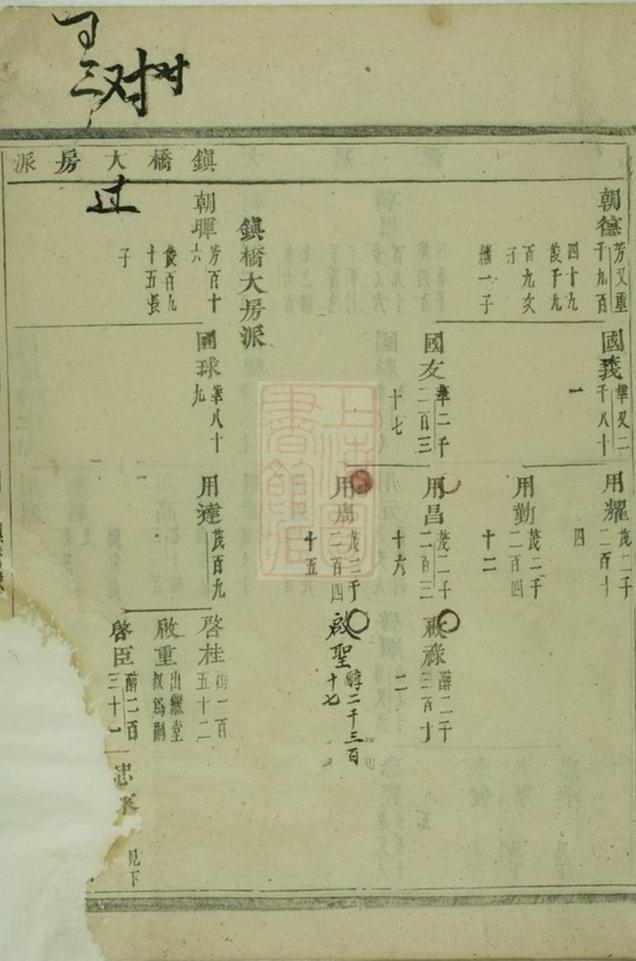 三对树
鎮橋大房派
过
朝德 芳又重千九百四十九
後千九百九次子
繼一子
國義 華又二千八十一
用耀 茂二千二百十四
用勤 茂二千二百四十二
國友 華二千二百三十七
用昌 茂二千二百三十六
啟祿 醇二千三百十二
用周 茂二千二百四十五
啟聖 醇二千三百十七
鎮橋大房派
朝暉 芳百十六
後百九十五長子
國球 華八十九
用達 茂百九十一
啓桂 醇一百五十二
啟重 出繼堂叔爲嗣
啓臣 醇二百三十一
忠
見下
上海圖書館藏